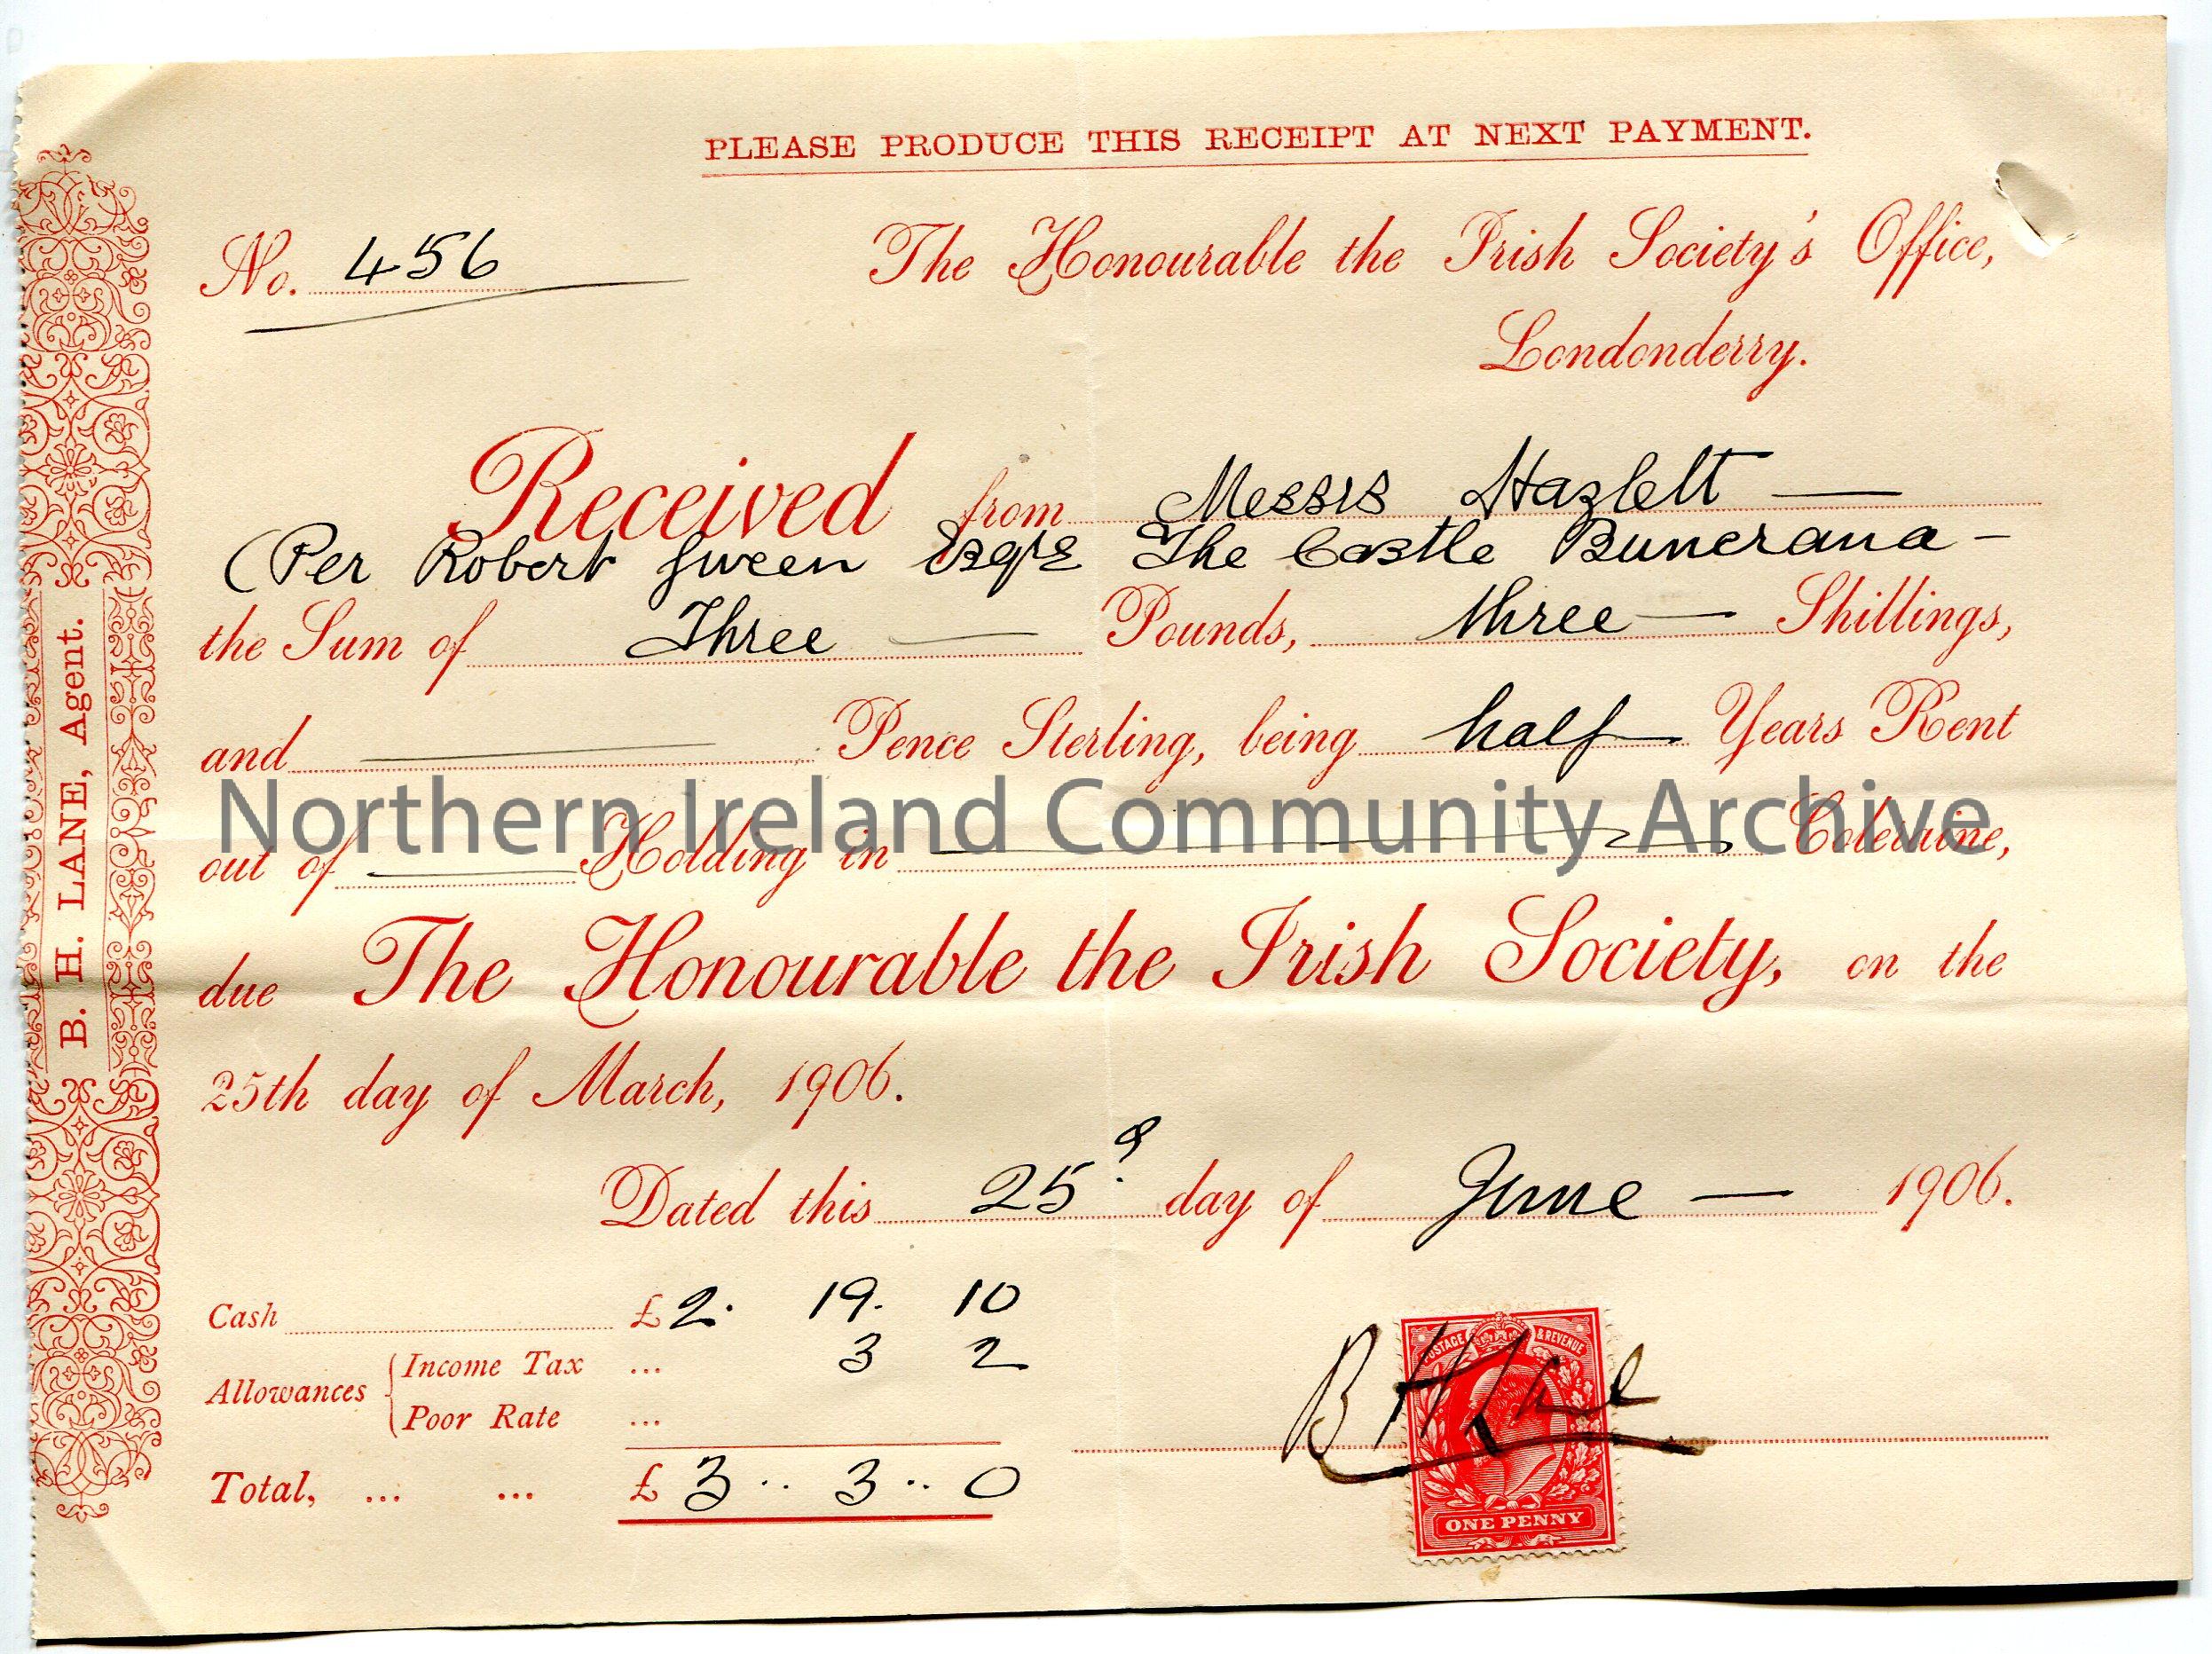 PLEASE PRODUCE THIS RECEIPT AT NEXT PAYMENT.
No. 456
The Honourable the Irish Society's Office,
Londonderry.
Received from Messrs Hazlett —
(Per Robert Sween Esqre The Castle Buncrana —
the Sum of Three — Pounds, three — Shillings,
and — Pence Sterling, being half Years Rent
out of — Holding in — Coleraine,
due The Honourable the Irish Society, on the
25th day of March, 1906.
Dated this 25 day of June — 1906.
Cash £2. 19. 10
Allowances { Income Tax ... 3 2
Poor Rate ...
Total, ... ... £ 3 .. 3 .. 0
B H Lane
POSTAGE & REVENUE
ONE PENNY
B. H. LANE, Agent.
Northern Ireland Community Archive